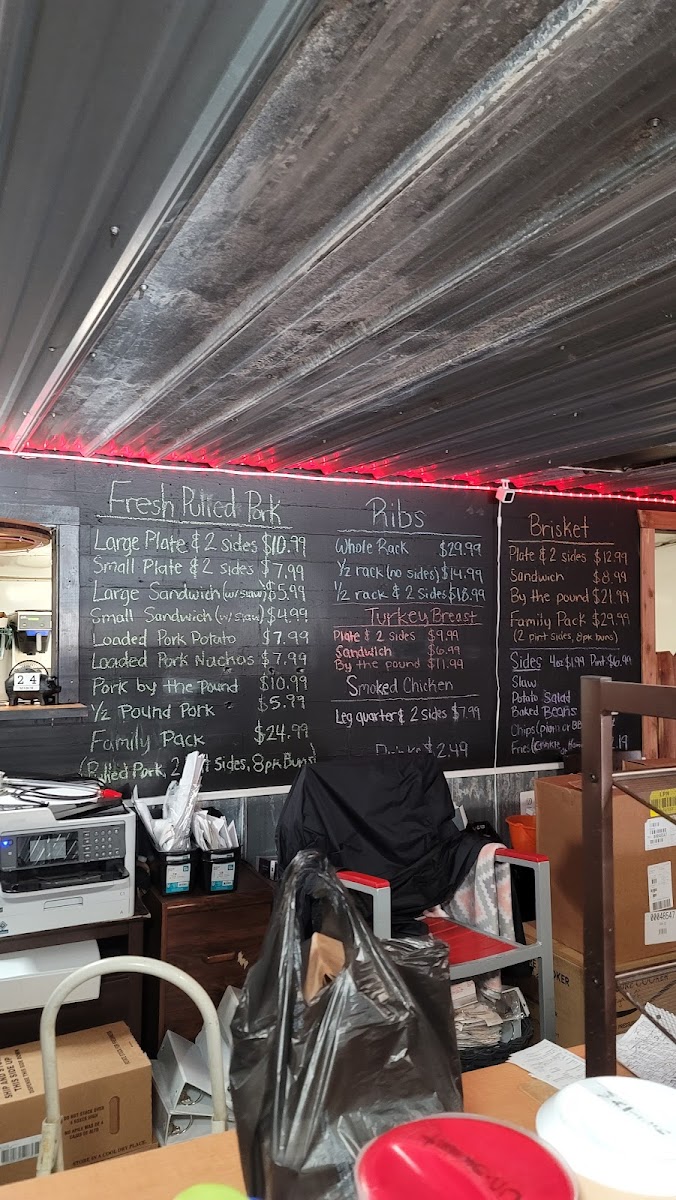 Fresh Pulled Pork
Large Plate & 2 sides $10.99
Small Plate & 2 sides $7.99
Large Sandwich (w/slaw) $5.99
Small Sandwich (w/slaw) $4.99
Loaded Pork Potato $7.99
Loaded Pork Nachos $7.99
Pork by the Pound $10.99
1/2 Pound Pork $5.99
Family Pack $24.99
(Pulled Pork, 2 Sides, 8pk Buns)
Ribs
Whole Rack $29.99
1/2 rack (no sides) $14.99
1/2 rack & 2 sides $18.99
Turkey Breast
Plate & 2 sides $9.99
Sandwich $6.99
By the pound $11.99
Smoked Chicken
Leg quarter & 2 Sides $7.99
Drinks $2.49
Brisket
Plate & 2 sides $12.99
Sandwich $8.99
By the pound $21.99
Family Pack $29.99
(2 pint sides, 8pk buns)
Sides 4oz $1.99 Pint $6.99
Slaw
Potato Salad
Baked Beans
Chips (plain or BB
Fries
24
LPN
00048547
SHIP AND
THIS SIDE UP
DO NOT STORE
STORE IN A COOL DRY PLACE